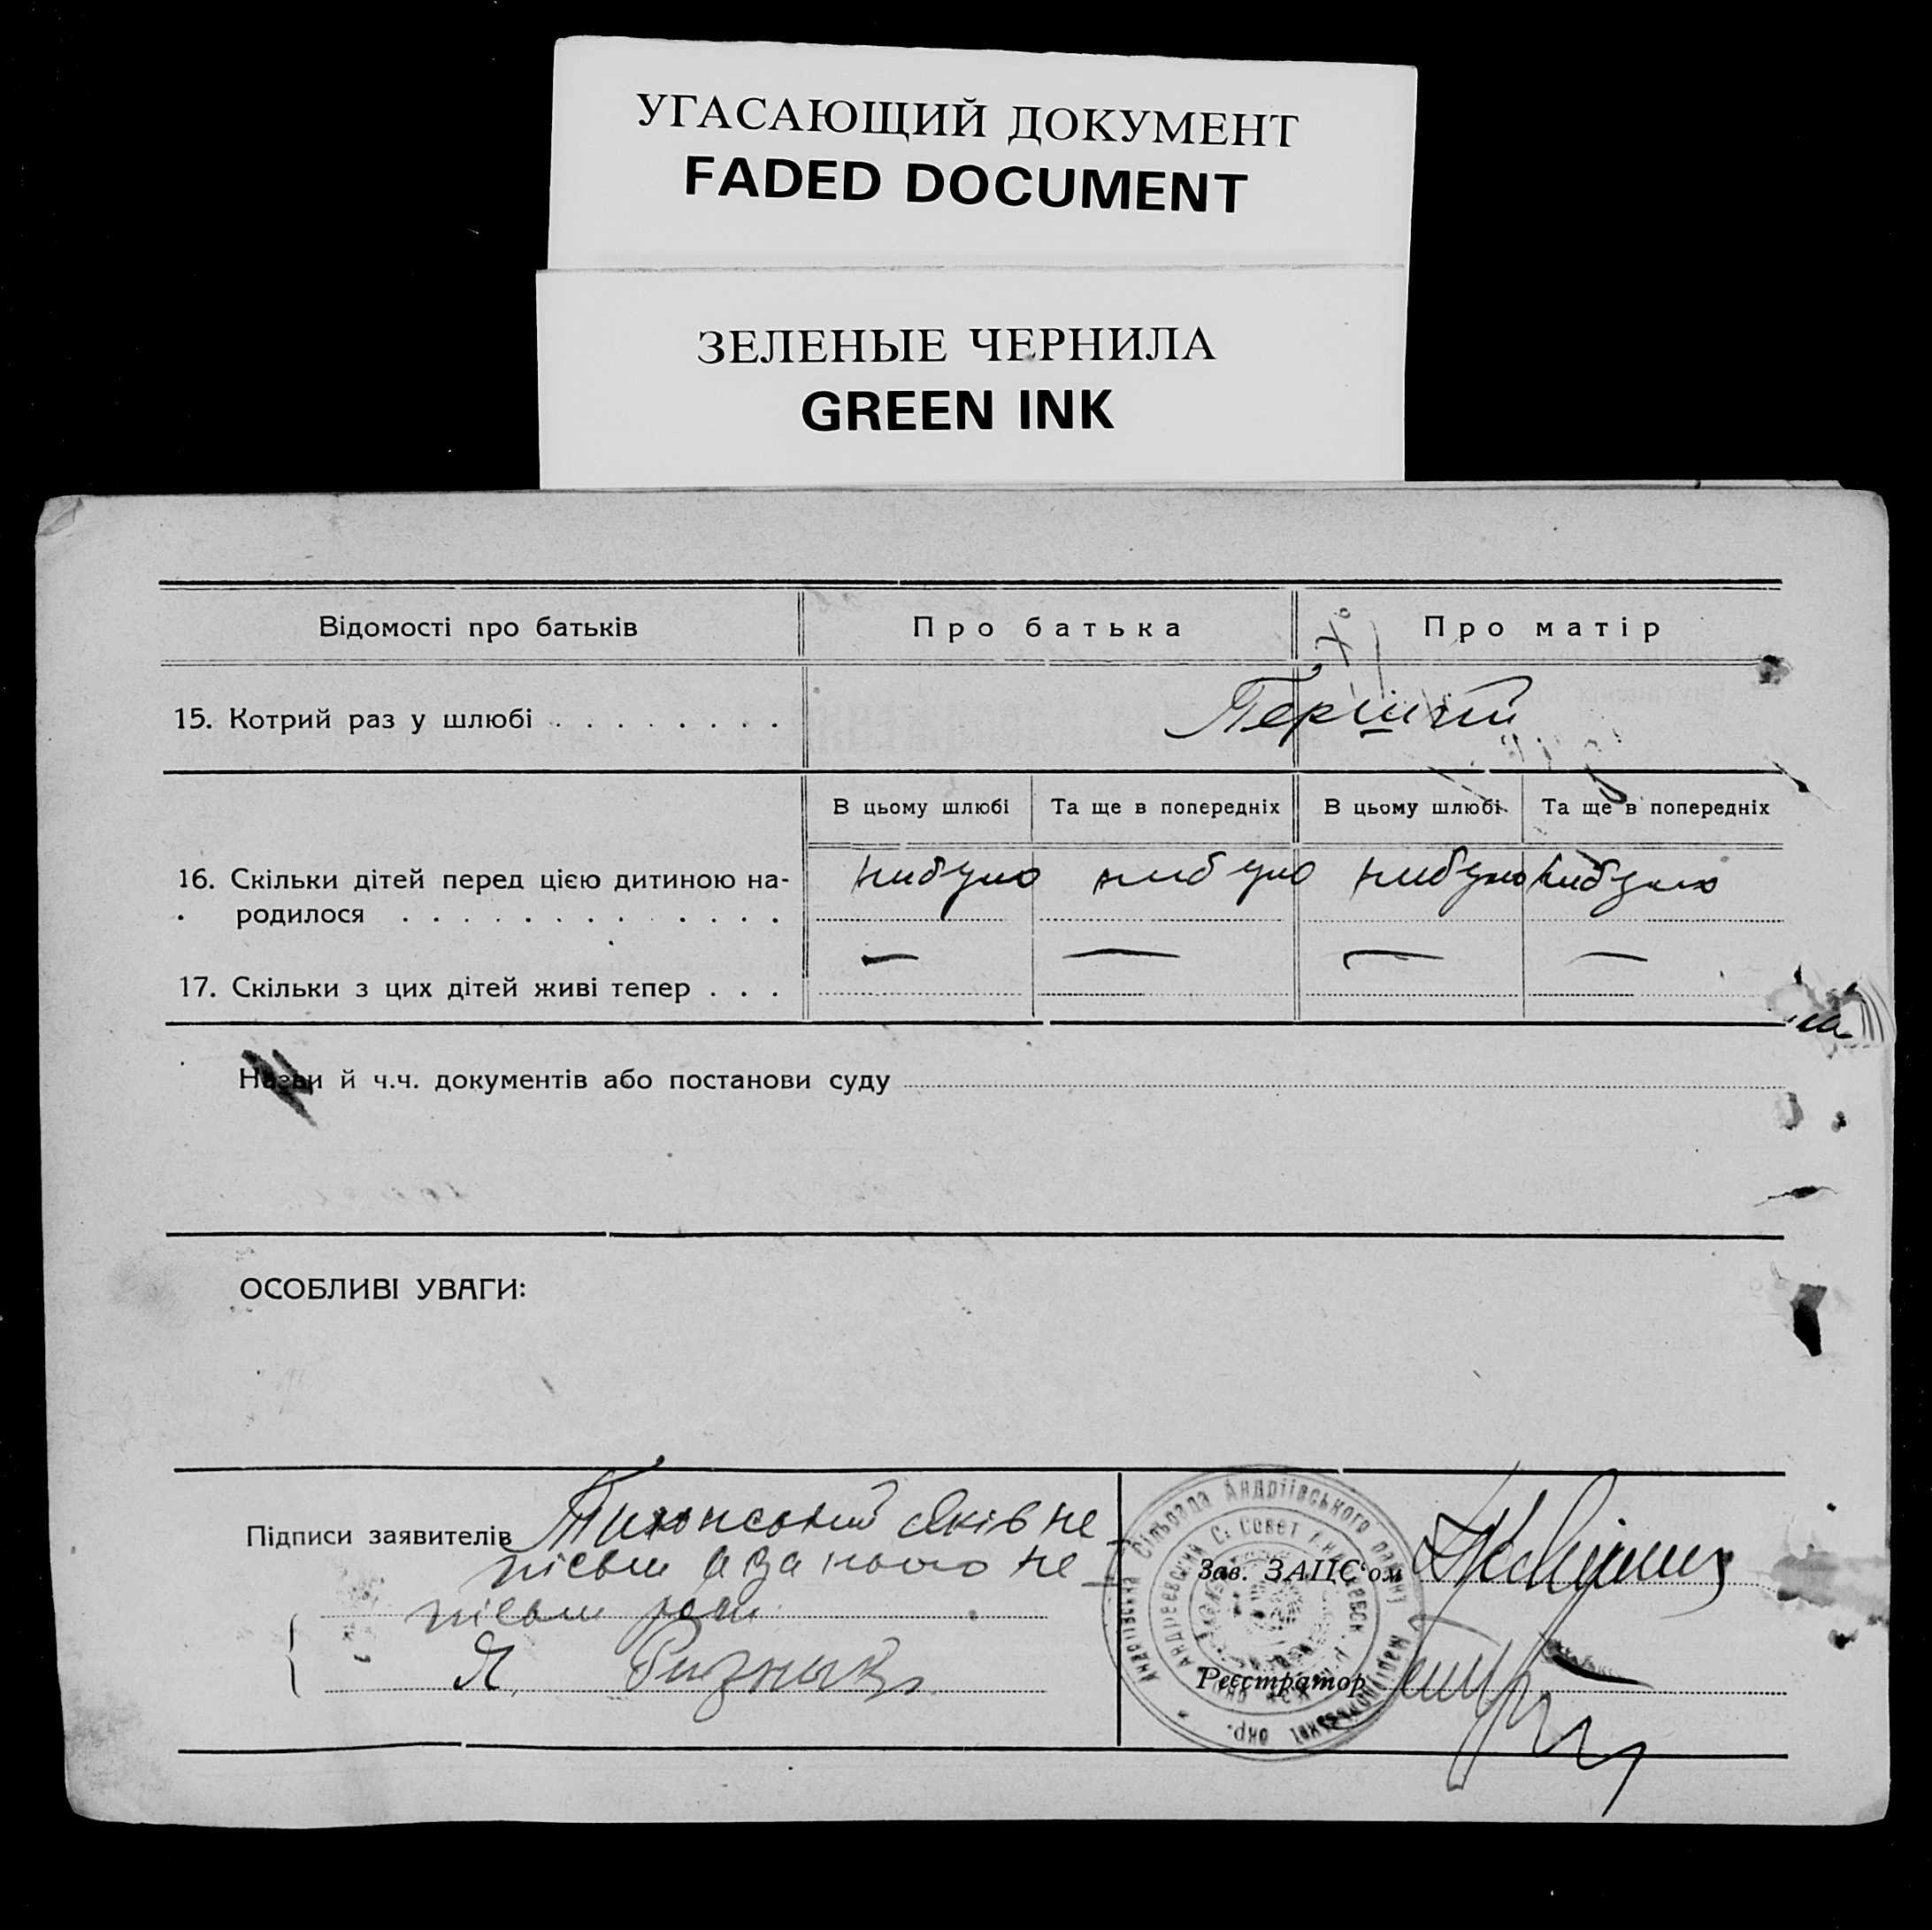 УГАСАЮЩИЙ ДОКУМЕНТ
FADED DOCUMENT
ЗЕЛЕНЫЕ ЧЕРНИЛА
GREEN INK
Відомості про батьків Про батька Про матір
15. Котрий раз у шлюбі . . . . . . . . Перший
В цьому шлюбі Та ще в попередніх В цьому шлюбі Та ще в попередніх
16. Скільки дітей перед цією дитиною на-
родилося . . . . . . . . . . . . . нибуло нибуло нибуло нибуло
17. Скільки з цих дітей живі тепер . . . — — — —
Назви й ч.ч. документів або постанови суду
ОСОБЛИВІ УВАГИ:
Підписи заявителів Яків не
пісьм а за нього не
пісьм
Я.
Зав. ЗАЦС'ом
Реєстратор
Андріївська Сільрада Андріївського району Маріюпольської окр.
Андреевский С. Совет